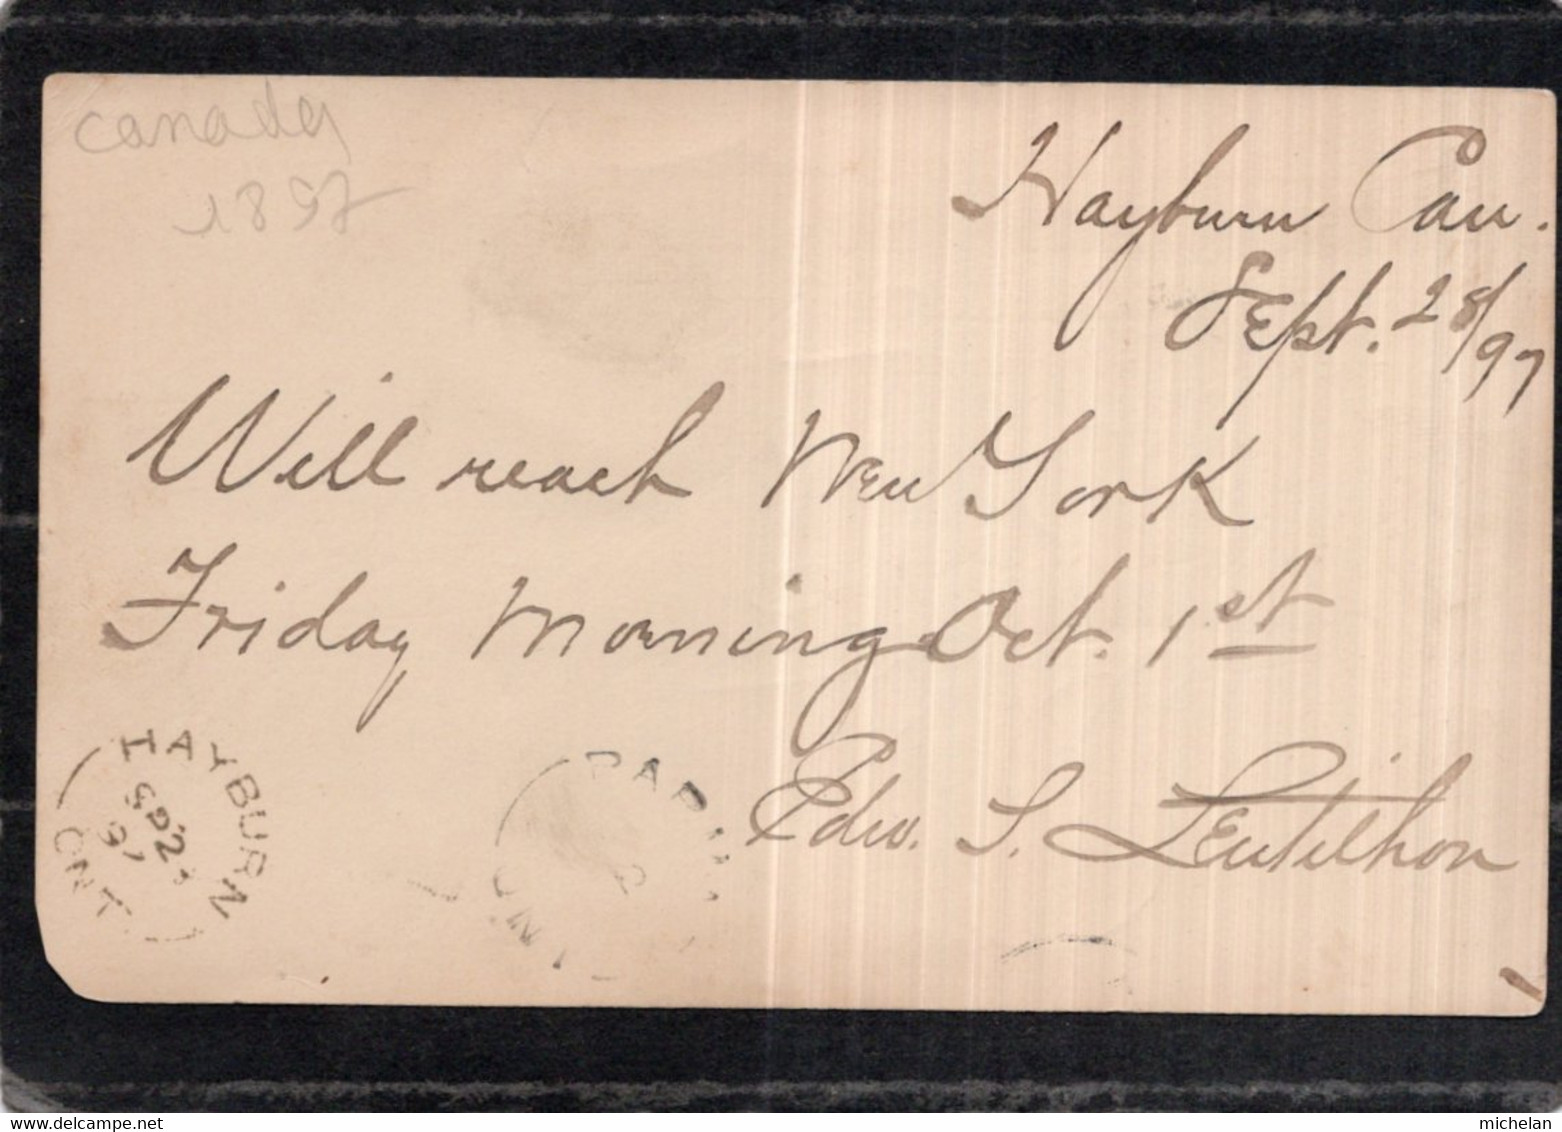 canada
1897
Hayburn Can.
Sept. 28/97
Will reach New York
Friday Morning Oct. 1st
Edw. S. Leutilhon
HAYBURN
SP 28
97
ONT.
michelan